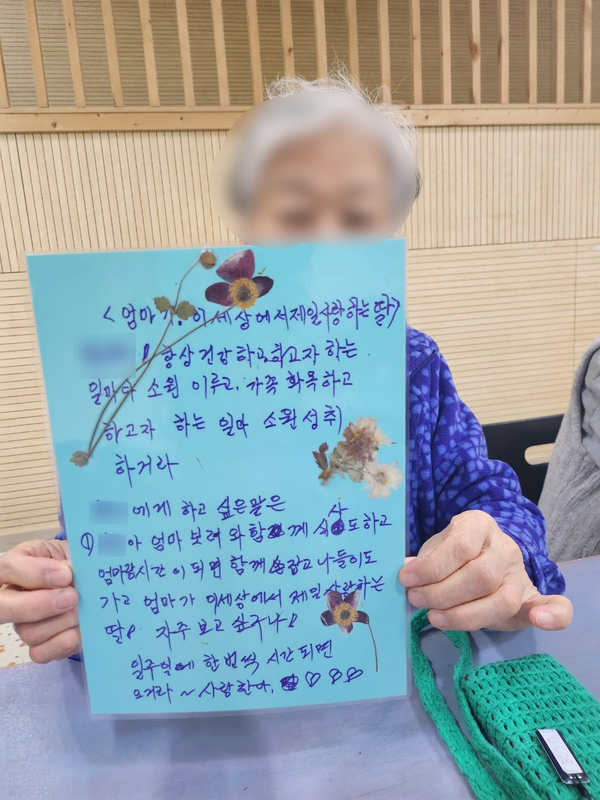 <엄마가, 이세상에서 제일 사랑하는 딸>
! 항상 건강하고, 하고자 하는
일마다 소원 이루고, 가족 화목하고
하고자 하는 일마다 소원성취
하거라
에게 하고 싶은말은
아 엄마 보러 와 함께 식사도하고
엄마랑시간이되면 함께 손잡고 나들이도
가고 엄마가 이세상에서 제일 사랑하는
딸! 자주 보고 싶구나!
일주일에 한번씩 시간되면
오거라 ~ 사랑한다. ♡ ♡ ♡